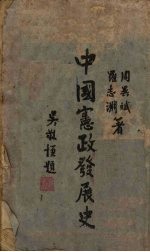 周異斌
羅志淵 著
中國憲政發展史
吳敬恆題